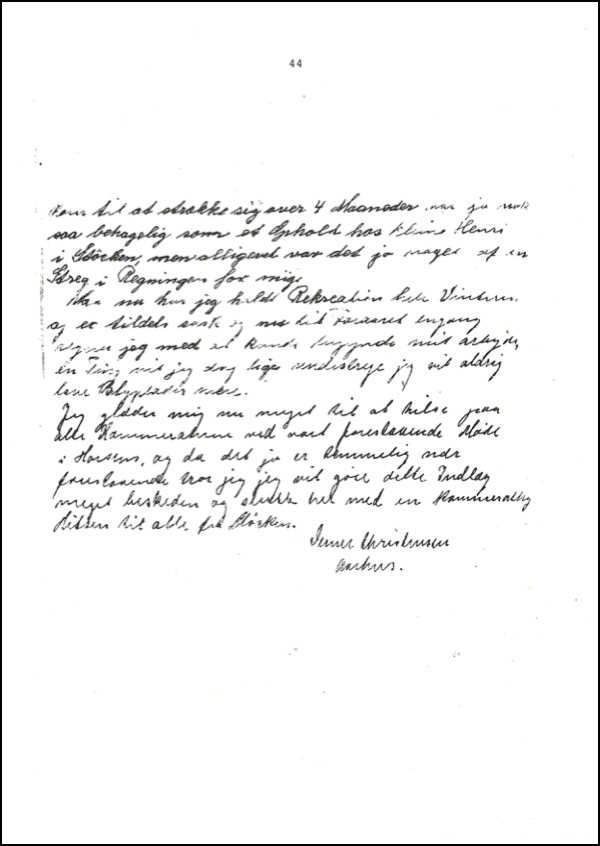 44
kom til at strække sig over 4 Maaneder var jo nok
saa behagelig som et Ophold hos kleine Henri
i Stöcken, men alligevel var det jo noget af en
Streg i Regningen for mig.
Naa nu har jeg holdt Rekreation hele Vinteren
og er tildels rask og nu til Foraaret engang
regner jeg med at kunde begynde mit Arbejde,
en Ting vil jeg dog lige understrege jeg vil aldrig
lave Blyplader mere.
Jeg glæder mig nu meget til at hilse paa
alle Kammeraterne ved vort forestaaende Møde
i Horsens, og da det jo er temmelig nær
forestaaende tror jeg jeg vil gøre dette Indlæg
meget beskeden og slutte her med en kammeratlig
Hilsen til alle fra Stöcken.
Christensen
Aarhus.